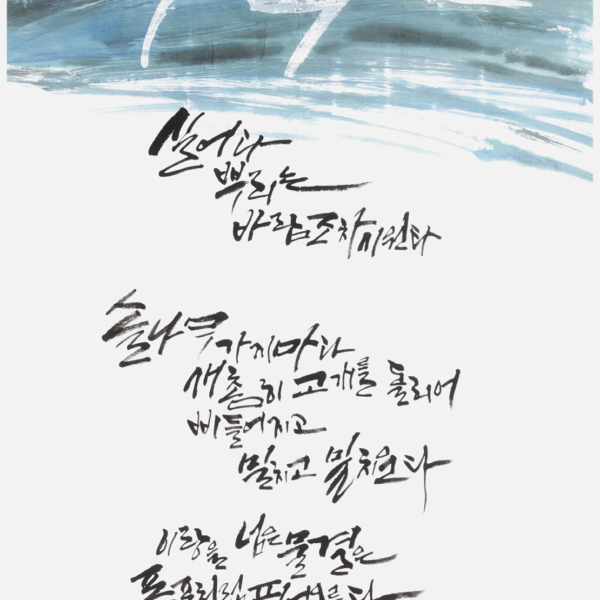 실어다
뿌리는
바람조차 시원타
솔나무 가지마다
새촘히 고개를 돌리어
삐들어지고
밀치고 밀치운다
이랑을 넘는 물결은